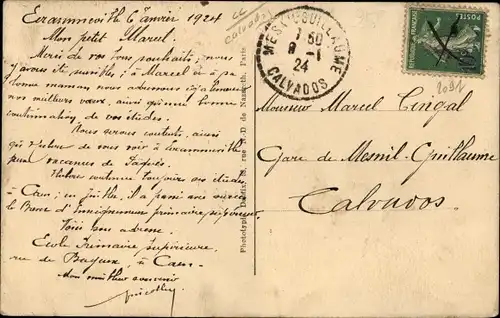 6 Janvier 1924
Mon petit Marcel.
Merci de tes bons souhaits; nous
y avons été sensibles; à Marcel et à sa
bonne maman nous adressons également
nos meilleurs vœux, ainsi qu'une bonne
continuation de tes études.
Nous serons contents, ainsi
de vous voir à
aux vacances de Pâques.
continue toujours ses études
à Caen; en juillet, il a passé avec succès
le Brevet d'Enseignement primaire supérieur
Voici son adresse.
Ecole Primaire supérieure
rue de Bayeux, à Caen
Mon meilleur souvenir
Calvados
MESNIL-GUILLAUME
50
8 -1
24
CALVADOS
POSTES
REPUBLIQUE FRANÇAISE
10
Monsieur Marcel Cingal
Gare de Mesnil-Guillaume
Calvados
N.-D. de Nazareth, Paris